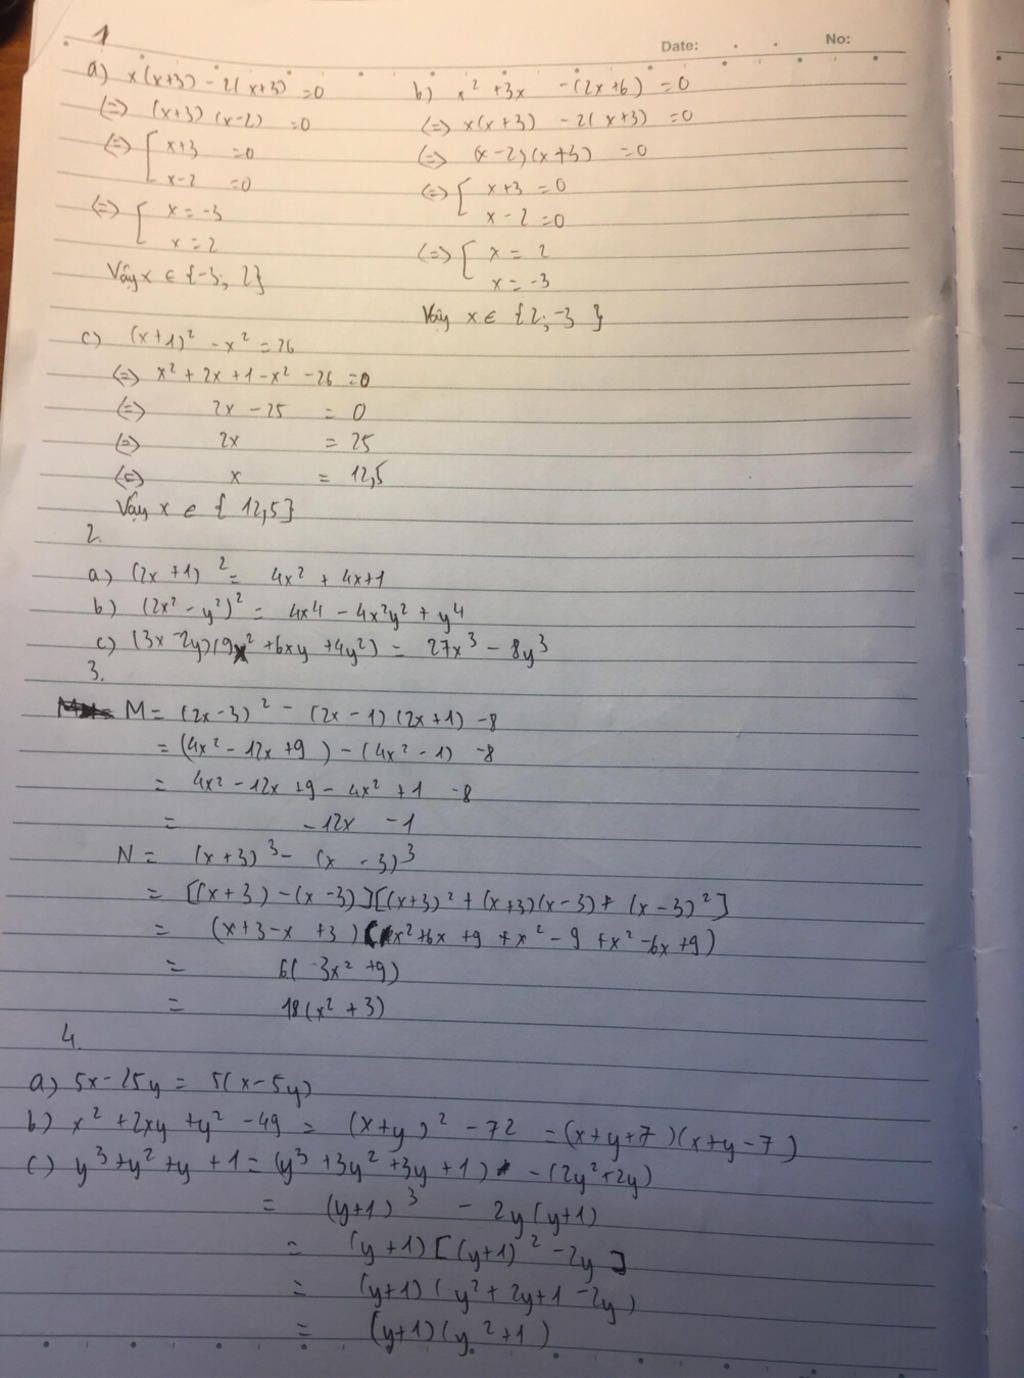 1
Date: No:
a) x(x+3) - 2(x+3) = 0
(=) (x+3)(x-2) = 0
(=) [ x+3 = 0
x-2 = 0
(=) [ x = -3
x = 2
Vậy x ∈ {-3; 2}
b) x² + 3x - (2x+6) = 0
(=) x(x+3) - 2(x+3) = 0
(=) (x-2)(x+3) = 0
(=) [ x+3 = 0
x-2 = 0
(=) [ x = 2
x = -3
Vậy x ∈ {2; -3}
c) (x+1)² - x² = 26
(=) x² + 2x + 1 - x² - 26 = 0
(=) 2x - 25 = 0
(=) 2x = 25
(=) x = 12,5
Vậy x ∈ {12,5}
2.
a) (2x+1)² = 4x² + 4x+1
b) (2x² - y²)² = 4x⁴ - 4x²y² + y⁴
c) (3x-2y)(9x² + 6xy + 4y²) = 27x³ - 8y³
3.
M = (2x-3)² - (2x-1)(2x+1) - 8
= (4x² - 12x + 9) - (4x² - 1) - 8
= 4x² - 12x + 9 - 4x² + 1 - 8
= -12x - 1
N = (x+3)³ - (x-3)³
= [(x+3) - (x-3)][(x+3)² + (x+3)(x-3) + (x-3)²]
= (x+3-x+3)(x² + 6x + 9 + x² - 9 + x² - 6x + 9)
= 6(3x² + 9)
= 18(x² + 3)
4.
a) 5x - 25y = 5(x-5y)
b) x² + 2xy + y² - 49 = (x+y)² - 72 = (x+y+7)(x+y-7)
c) y³ + y² + y + 1 = (y³ + 3y² + 3y + 1) - (2y² + 2y)
= (y+1)³ - 2y(y+1)
= (y+1)[(y+1)² - 2y]
= (y+1)(y² + 2y + 1 - 2y)
= (y+1)(y² + 1)